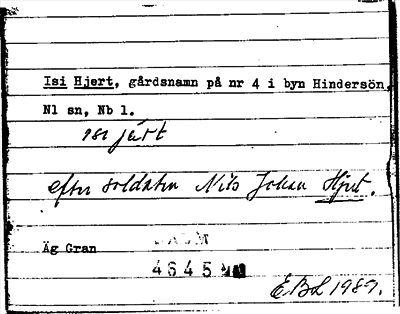 Isi Hjert, gårdsnamn på nr 4 i byn Hindersön,
Nl sn, Nb l.
ısı jært
efter soldaten Nils Johan Hjert.
Äg Gran
4645
EBL 1989.